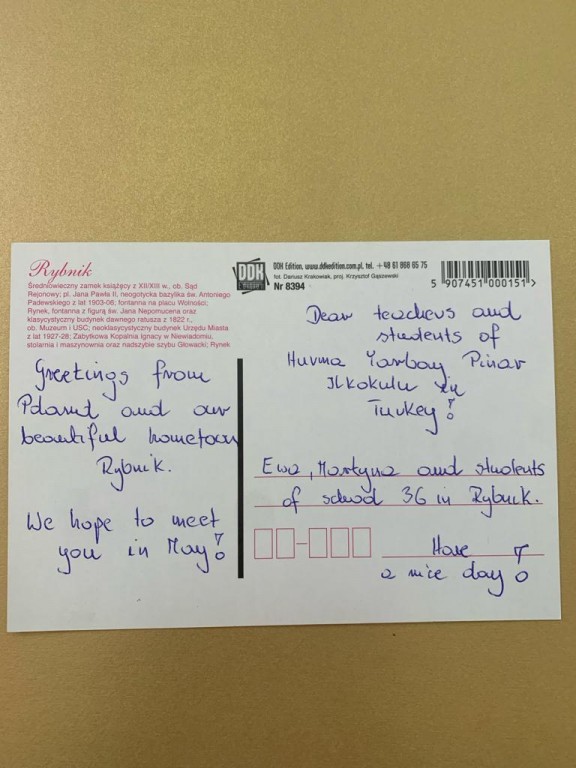 Rybnik
Średniowieczny zamek książęcy z XII/XIII w., ob. Sąd
Rejonowy; pl. Jana Pawła II, neogotycka bazylika św. Antoniego
Padewskiego z lat 1903-06; fontanna na placu Wolności;
Rynek, fontanna z figurą św. Jana Nepomucena oraz
klasycystyczny budynek dawnego ratusza z 1822 r.,
ob. Muzeum i USC; neoklasycystyczny budynek Urzędu Miasta
z lat 1927-28; Zabytkowa Kopalnia Ignacy w Niewiadomiu,
stolarnia i maszynownia oraz nadszybie szybu Głowacki; Rynek
Greetings from
Poland and our
beautiful hometown
Rybnik.
We hope to meet
you in May!
DDK
DDK Edition, www.ddkedition.com.pl, tel. +48 61 868 65 75
fot. Dariusz Krakowiak, proj. Krzysztof Gąszewski
Nr 8394
5 907451 000151 >
Dear teachers and
students of
Hurma Yarbay Pinar
Ilkokulu in
Turkey!
Ewa, Martyna and students
of school 36 in Rybnik.
Have
a nice day!